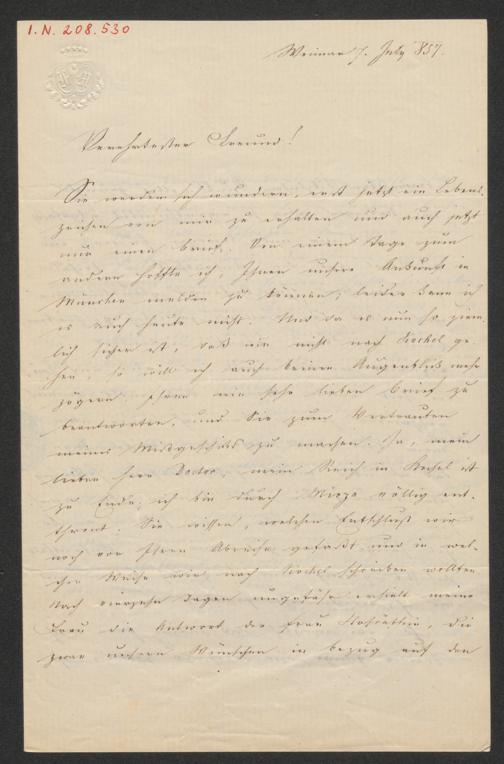 I.N. 208.530
Weimar 7. July 857.
Verehrtester Freund!
Sie werden sich wundern, erst jetzt ein Lebens-
zeichen von mir zu erhalten und auch jetzt
nur einen Brief. Von einem Tage zum
andern hoffte ich, Ihnen unsere Ankunft in
München melden zu können, leider kann ich
es auch heute nicht. Und da es nun so ziem-
lich sicher ist, daß wir nicht nach Kochel ge-
hen, so will ich auch keinen Augenblick mehr
zögern, Ihren mir sehr lieben Brief zu
beantworten, und Sie zum Vertrauten
meines Mißgeschicks zu machen. Ja, mein
lieber Herr Doctor, mein Reich in Kochel ist
zu Ende, ich bin durch völlig ent-
thront. Sie wissen, welchen Entschluß wir
noch vor Ihrer Abreise gefaßt und in wel-
cher Weise wir nach Kochel schreiben wollten.
Nach vierzehn Tagen ungefähr erhielt meine
Frau die Antwort der Frau, die
zwar unsern Wünschen in bezug auf den